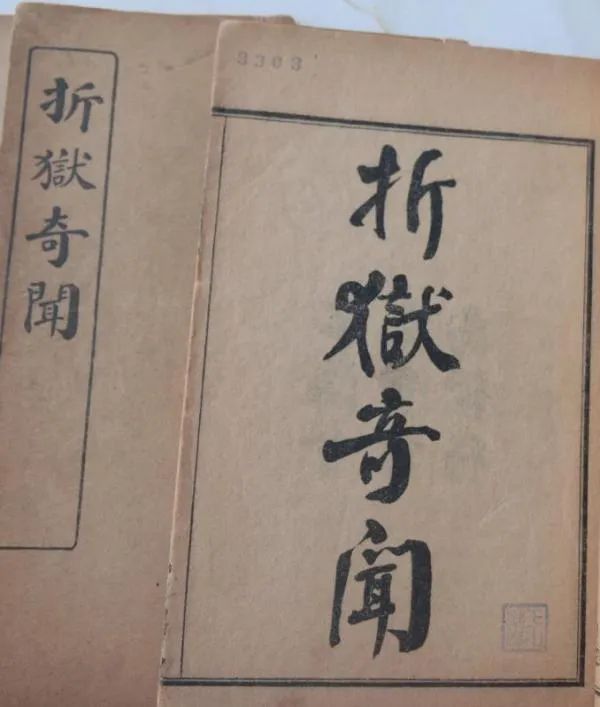 折獄奇聞
3303
折獄奇聞